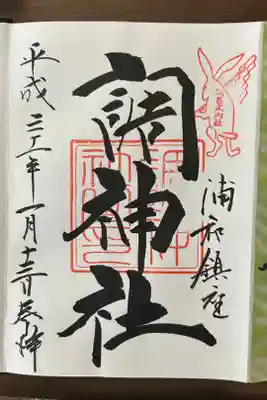 浦和鎮座
調神社
平成三十一年一月十三日参拝